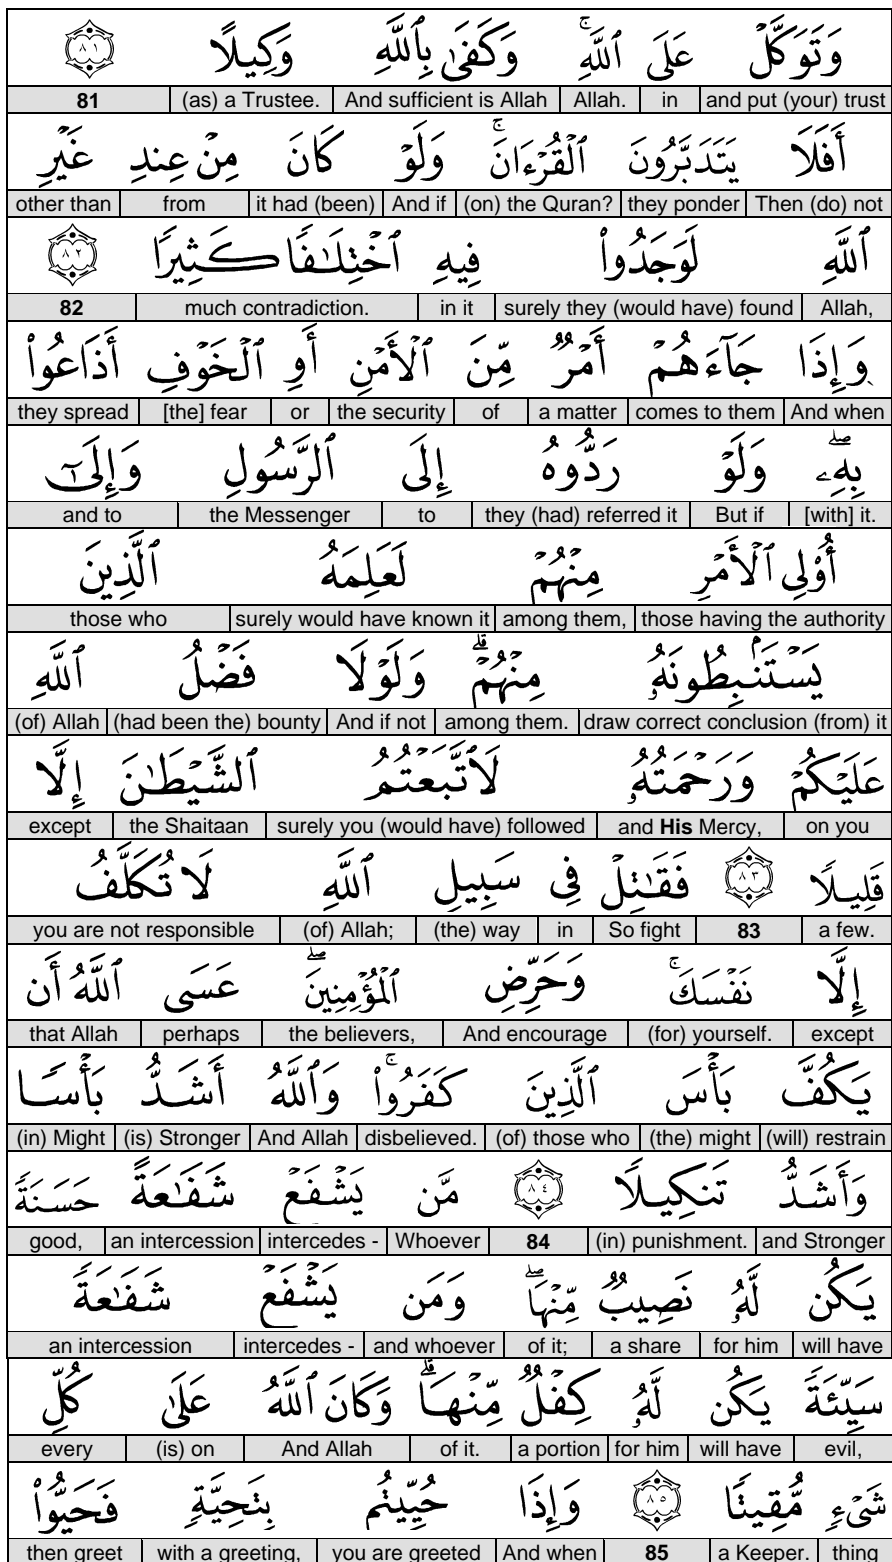 وَتَوَكَّلۡ عَلَى ٱللَّهِۚ وَكَفَىٰ بِٱللَّهِ وَكِيلًا ٨١
and put (your) trust in Allah. And sufficient is Allah (as) a Trustee. 81
أَفَلَا يَتَدَبَّرُونَ ٱلۡقُرۡءَانَۚ وَلَوۡ كَانَ مِنۡ عِندِ غَيۡرِ
Then (do) not they ponder (on) the Quran? And if it had (been) from other than
ٱللَّهِ لَوَجَدُواْ فِيهِ ٱخۡتِلَٰفٗا كَثِيرٗا ٨٢
Allah, surely they (would have) found in it much contradiction. 82
وَإِذَا جَآءَهُمۡ أَمۡرٞ مِّنَ ٱلۡأَمۡنِ أَوِ ٱلۡخَوۡفِ أَذَاعُواْ
And when comes to them a matter of the security or [the] fear they spread
بِهِۦۖ وَلَوۡ رَدُّوهُ إِلَى ٱلرَّسُولِ وَإِلَىٰٓ
[with] it. But if they (had) referred it to the Messenger and to
أُوْلِي ٱلۡأَمۡرِ مِنۡهُمۡ لَعَلِمَهُ ٱلَّذِينَ
those having the authority among them, surely would have known it those who
يَسۡتَنۢبِطُونَهُۥ مِنۡهُمۡۗ وَلَوۡلَا فَضۡلُ ٱللَّهِ
draw correct conclusion (from) it among them. And if not (had been the) bounty (of) Allah
عَلَيۡكُمۡ وَرَحۡمَتُهُۥ لَٱتَّبَعۡتُمُ ٱلشَّيۡطَٰنَ إِلَّا
on you and His Mercy, surely you (would have) followed the Shaitaan except
قَلِيلٗا ٨٣ فَقَٰتِلۡ فِي سَبِيلِ ٱللَّهِ لَا تُكَلَّفُ
a few. 83 So fight in (the) way (of) Allah; you are not responsible
إِلَّا نَفۡسَكَۚ وَحَرِّضِ ٱلۡمُؤۡمِنِينَۖ عَسَى ٱللَّهُ أَن
except (for) yourself. And encourage the believers, perhaps that Allah
يَكُفَّ بَأۡسَ ٱلَّذِينَ كَفَرُواْۚ وَٱللَّهُ أَشَدُّ بَأۡسٗا
(will) restrain (the) might (of) those who disbelieved. And Allah (is) Stronger (in) Might
وَأَشَدُّ تَنكِيلٗا ٨٤ مَّن يَشۡفَعۡ شَفَٰعَةً حَسَنَةٗ
and Stronger (in) punishment. 84 Whoever intercedes - an intercession good,
يَكُن لَّهُۥ نَصِيبٞ مِّنۡهَاۖ وَمَن يَشۡفَعۡ شَفَٰعَةٗ
will have for him a share of it; and whoever intercedes - an intercession
سَيِّئَةٗ يَكُن لَّهُۥ كِفۡلٞ مِّنۡهَاۗ وَكَانَ ٱللَّهُ عَلَىٰ كُلِّ
evil, will have for him a portion of it. And Allah (is) on every
شَيۡءٖ مُّقِيتٗا ٨٥ وَإِذَا حُيِّيتُم بِتَحِيَّةٖ فَحَيُّواْ
thing a Keeper. 85 And when you are greeted with a greeting, then greet